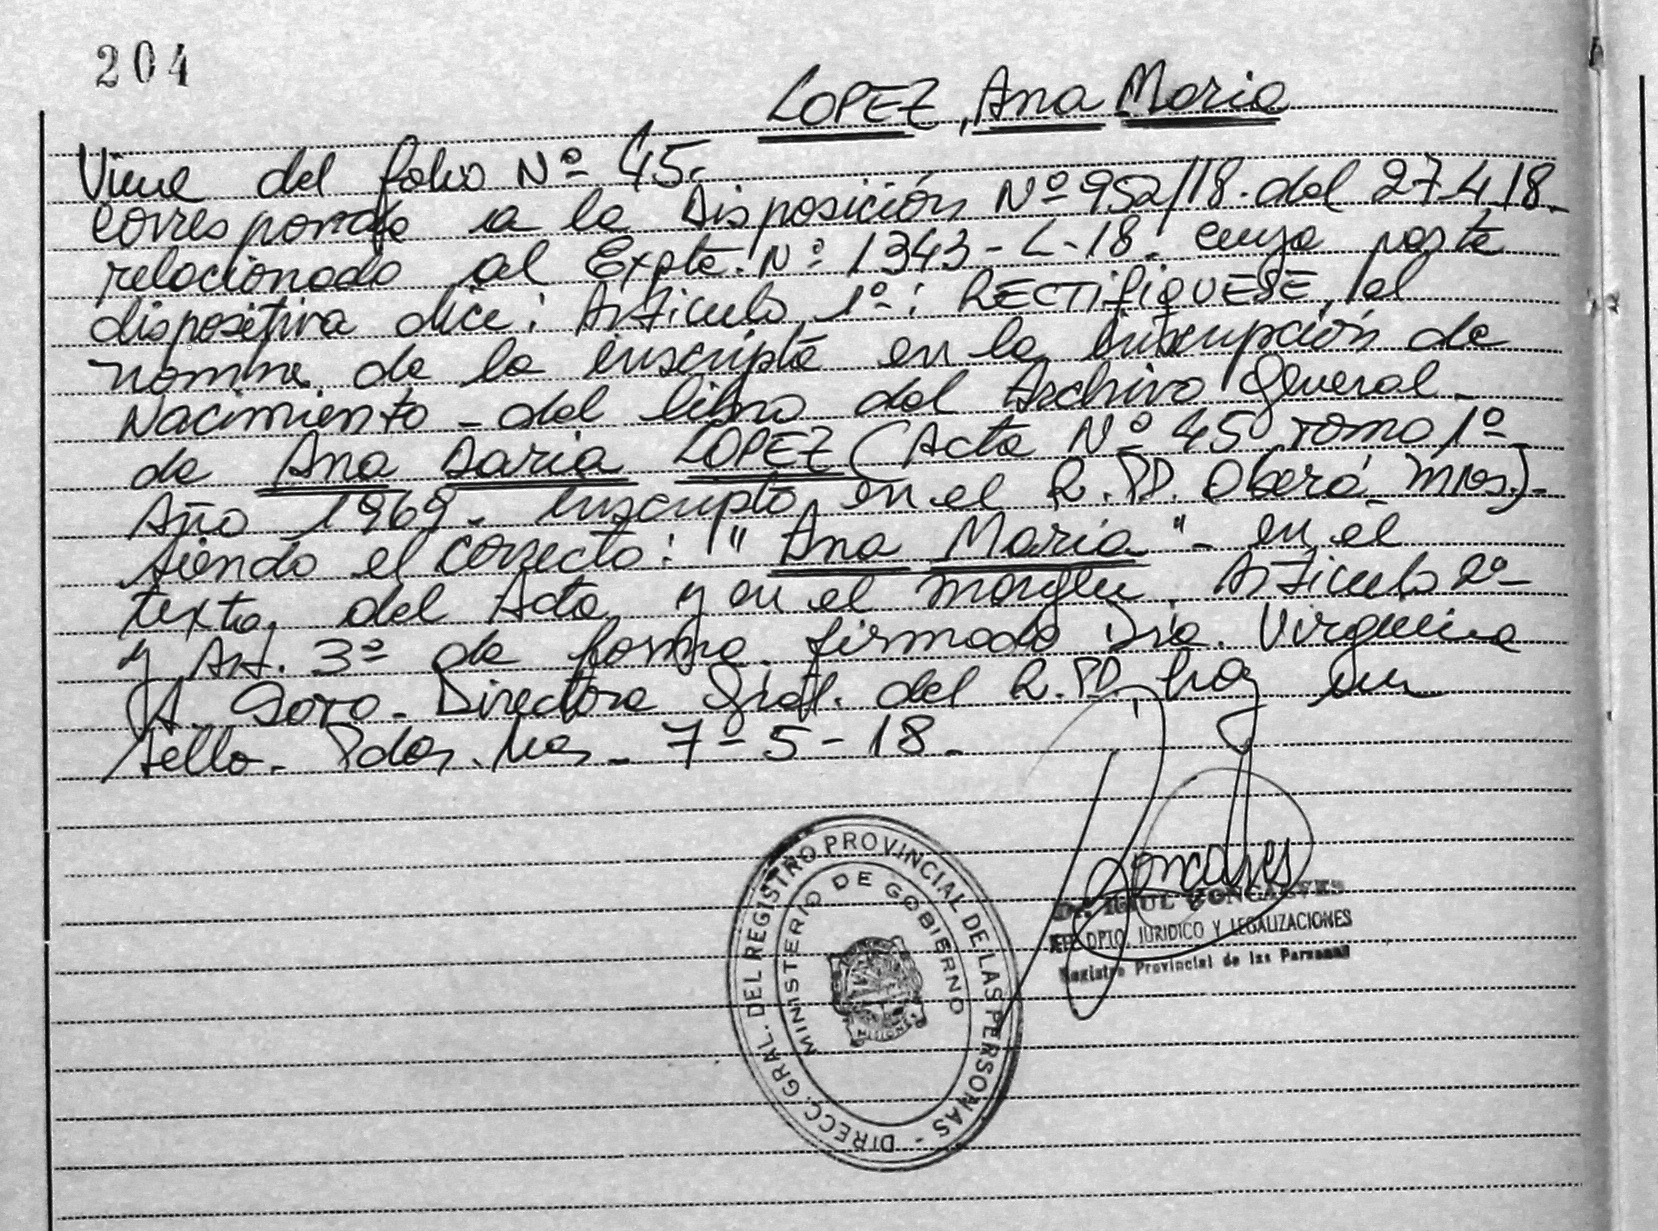 204
LOPEZ, Ana Maria
Viene del folio Nº 45.
corresponde a la Disposición Nº 952/18. del 27.4.18.
relacionado al Expte. Nº 1343-L-18. cuya parte
dispositiva dice: Articulo 1º: RECTIFIQUESE, el
nombre de la inscripta en la inscripción de
Nacimiento - del libro del Archivo General -
de Ana Daria LOPEZ (Acta Nº 45 Tomo 1º
Año 1969. inscripto en el R.PP. Oberá Mnes.) -
siendo el correcto: "Ana Maria" - en el
texto del Acta y en el margen. Articulo 2º -
y Art. 3º de forma. firmado Dra. Virginia
A. Directora Gral. del R.PP. hay un
sello. Pdas. Mnes. - 7-5-18.
Dr. RAUL GONCALVES
JEFE DPTO. JURIDICO Y LEGALIZACIONES
Registro Provincial de las Personas
DIRECC. GRAL. DEL REGISTRO PROVINCIAL DE LAS PERSONAS -
MINISTERIO DE GOBIERNO
MISIONES